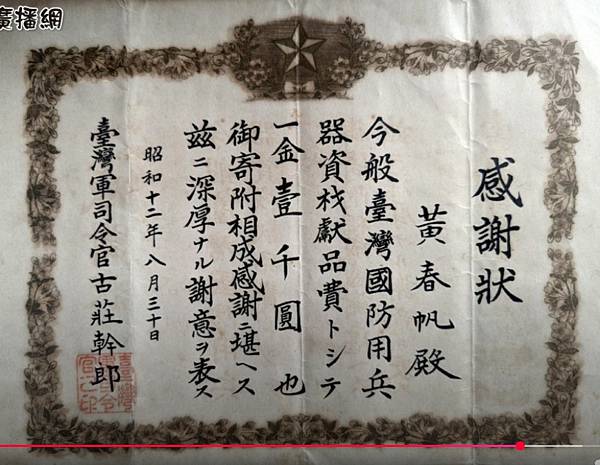 廣播網
感謝狀
黃春帆殿
今般臺灣國防用兵
器資材獻品費トシテ
一金壹千圓也
御寄附相成感謝ニ堪ヘス
玆ニ深厚ナル謝意ヲ表ス
昭和十二年八月三十日
臺灣軍司令官古莊幹郎
臺灣
軍司令
官之印